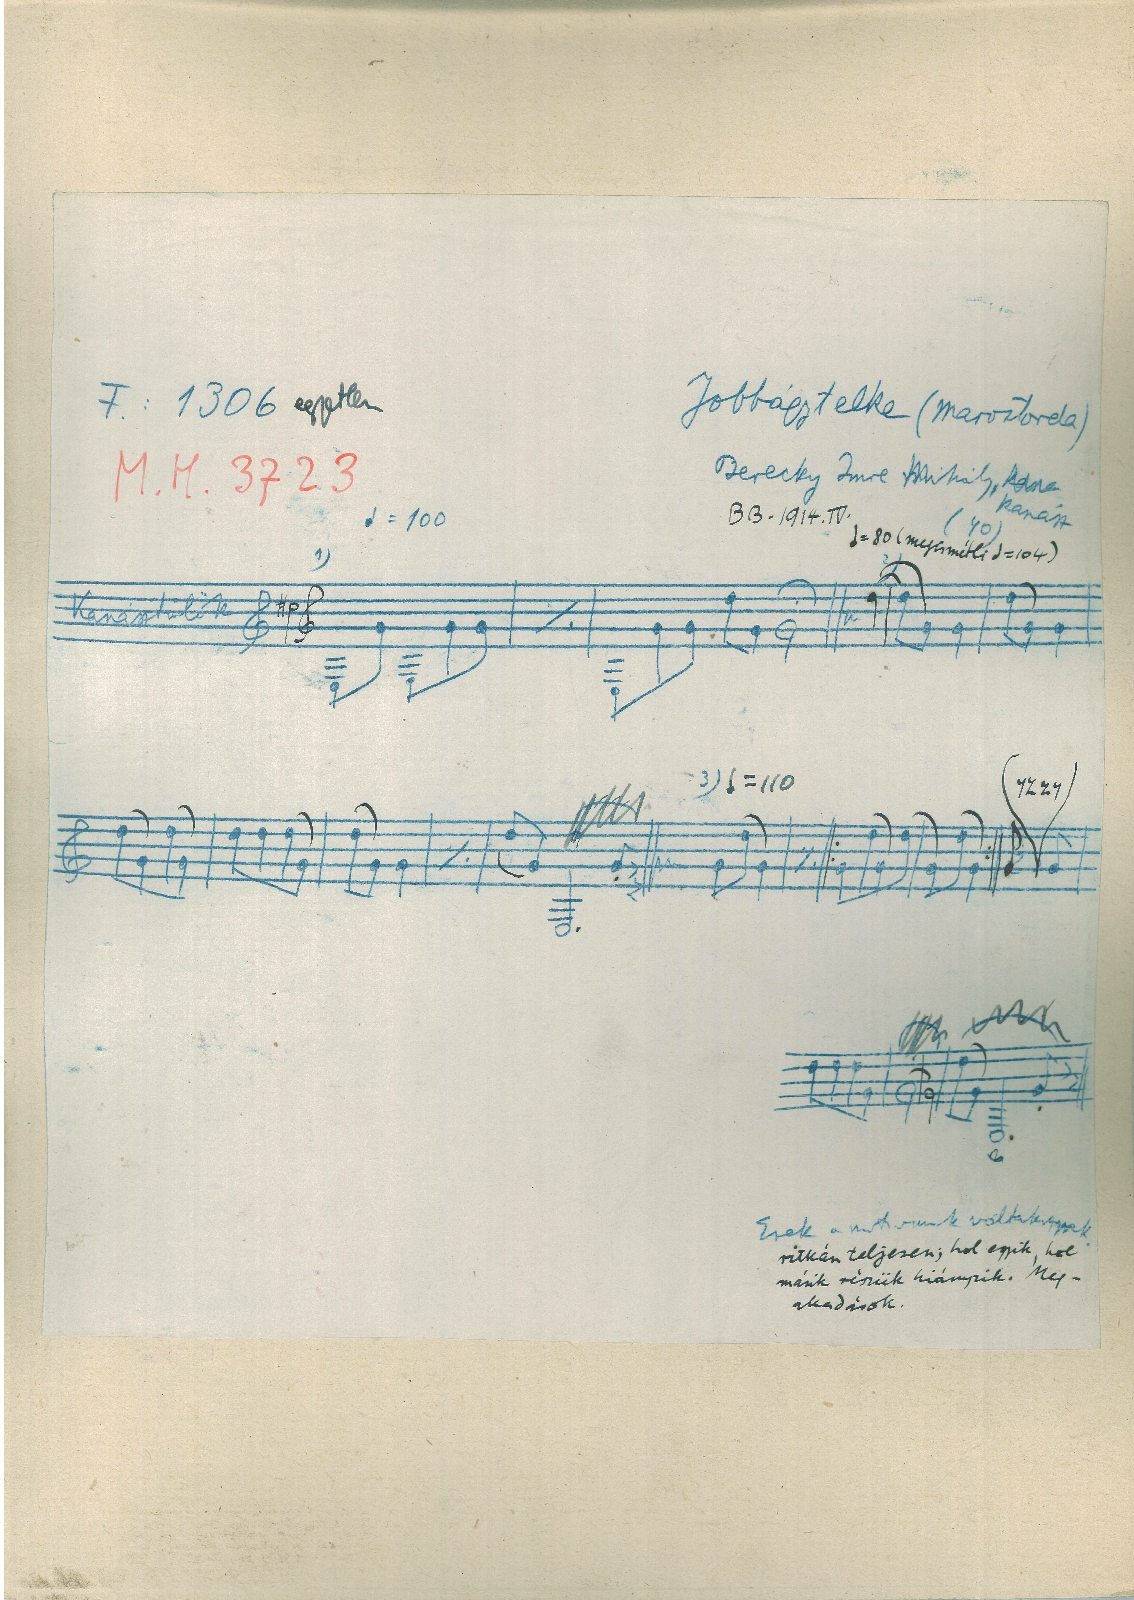 F.: 1306 egyetlen
Jobbágytelke (Marostorda)
M.H. 3723
Berecky Imre Mihály,
kanász
♩ = 100
BB. 1914. IV.
(40)
♩=80 (megismétli ♩=104)
1)
2)
Kanásztülök
3) ♩=110
Ezek a voltak
ritkán teljesen; hol egyik, hol
másik részük hiányzik. Meg-
akadások.